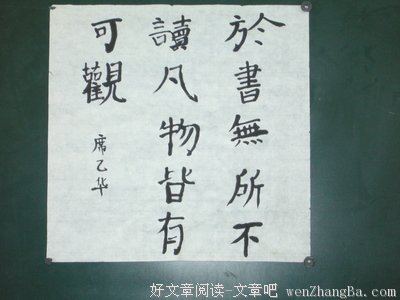 於書無所不
讀凡物皆有
可觀
席乙华
好文章阅读-文章吧 wenZhangBa.com